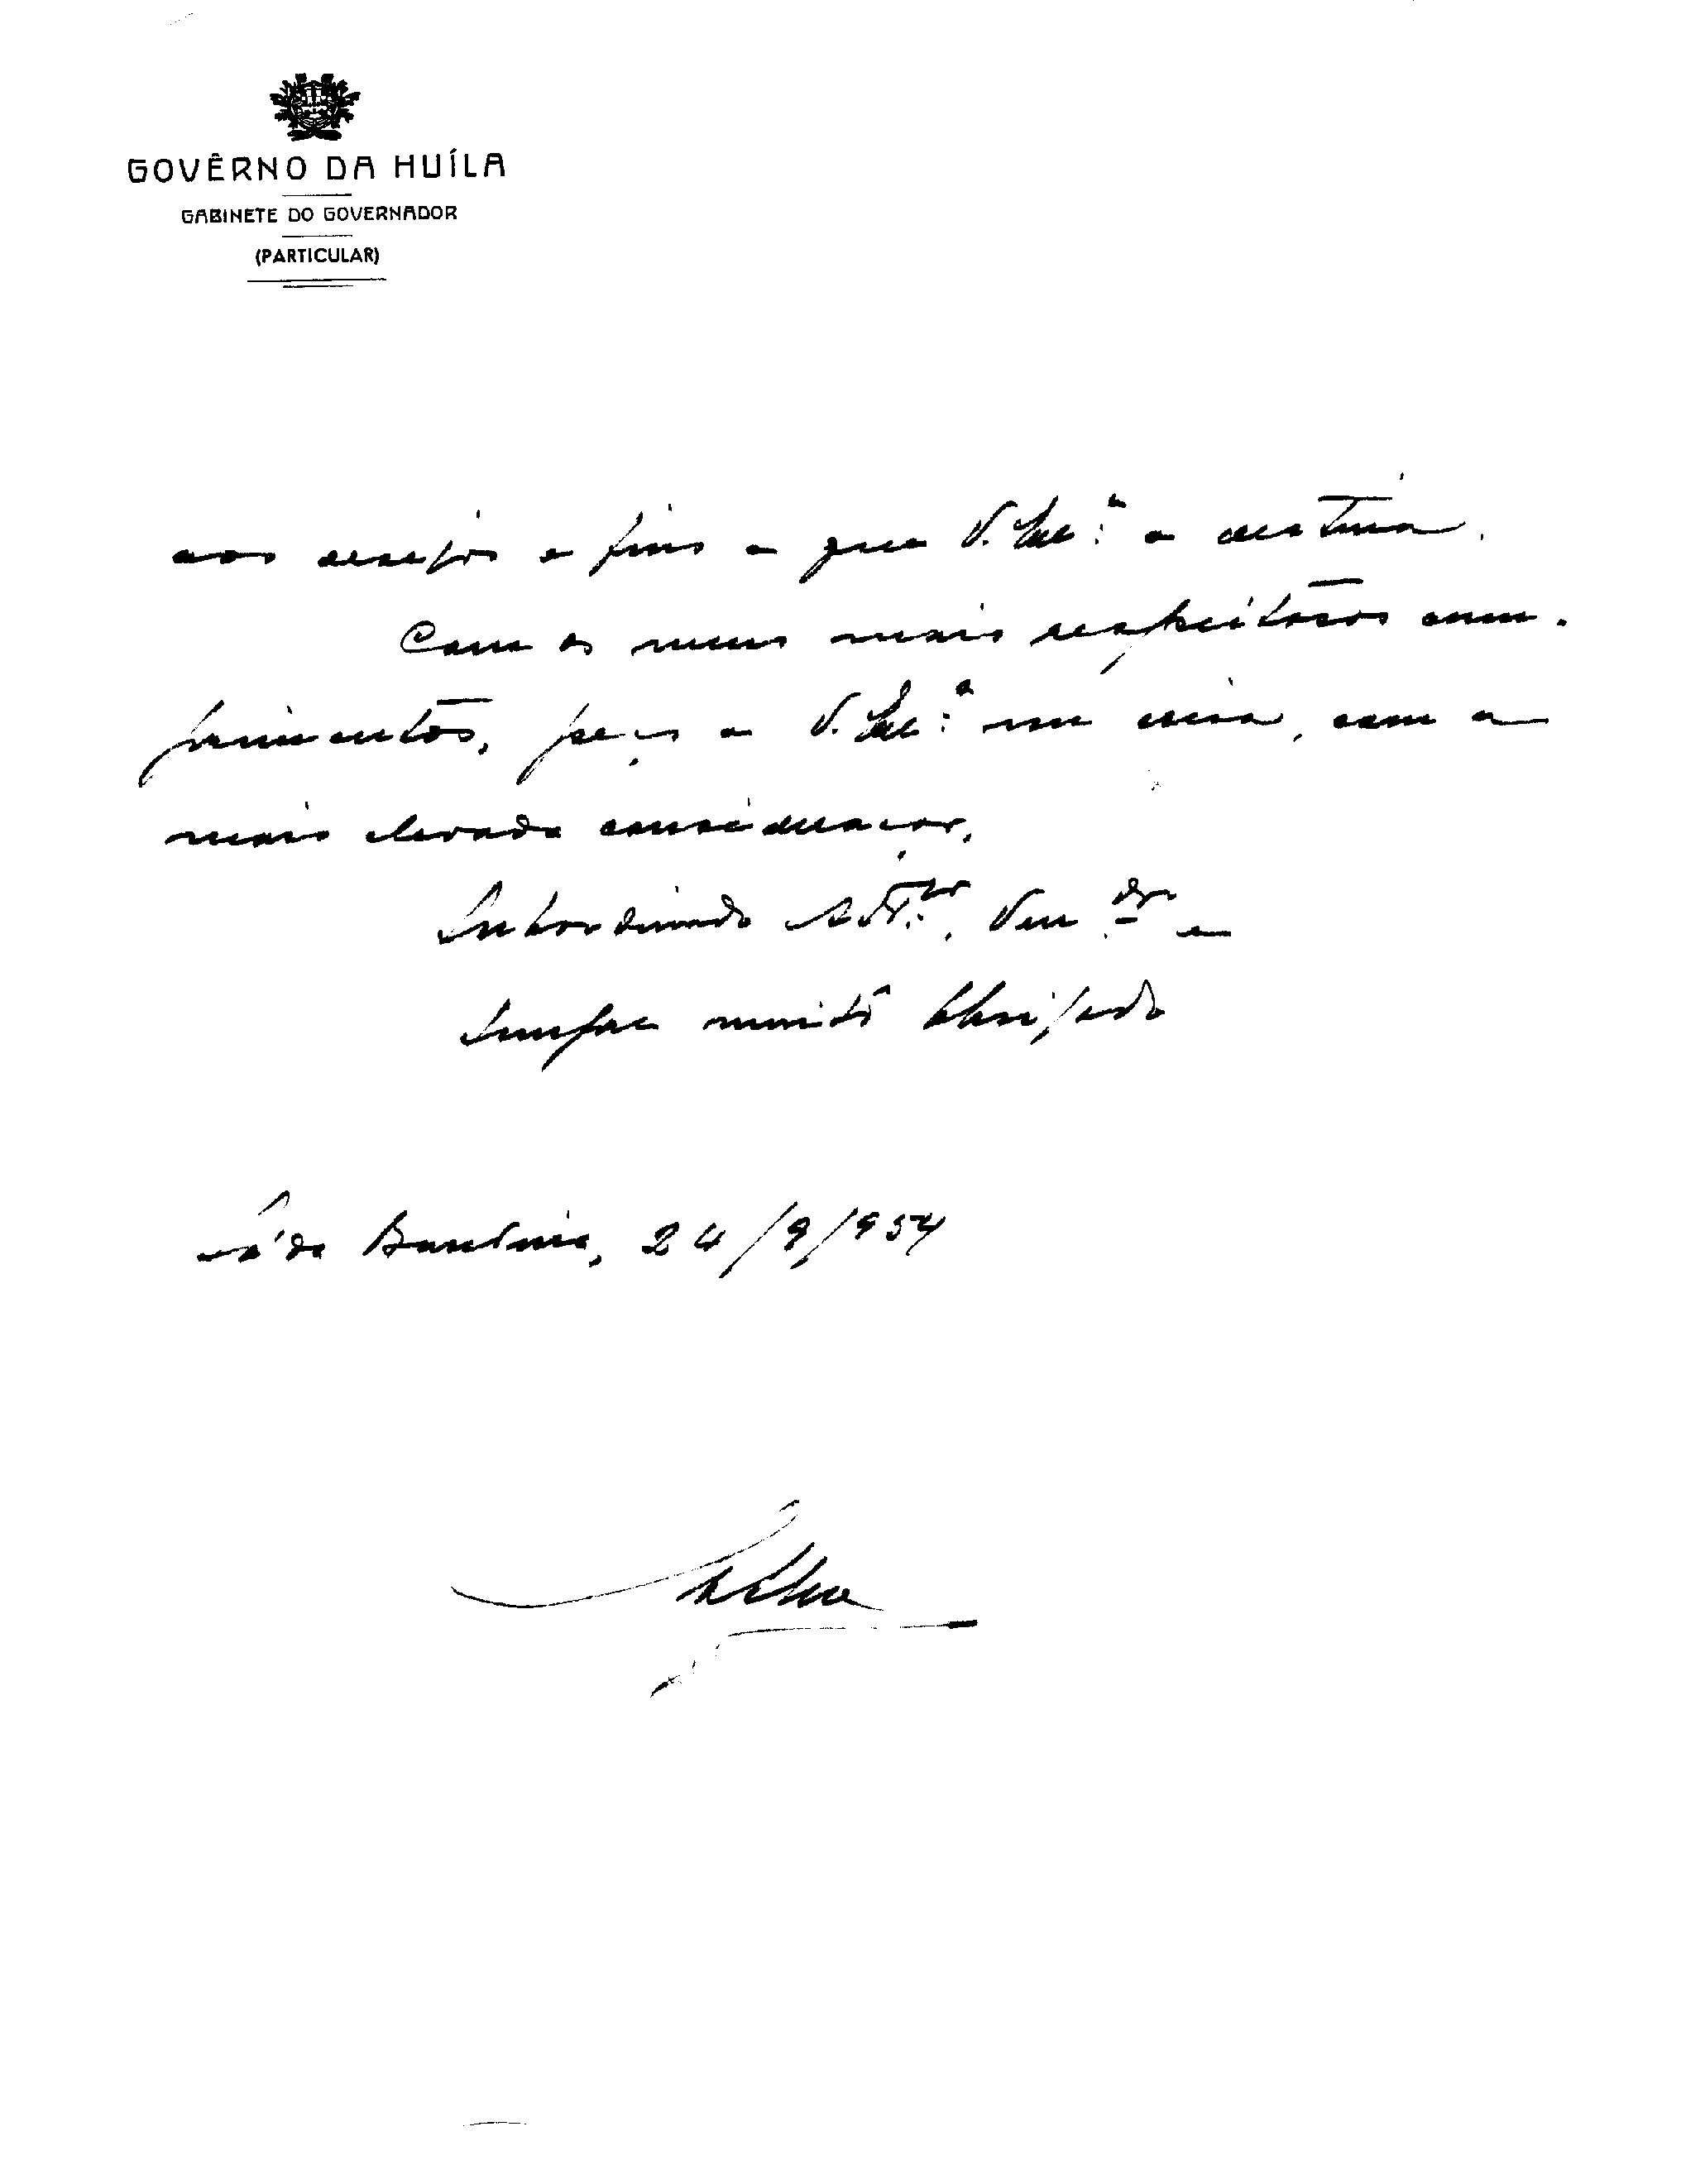 GOVÊRNO DA HUÍLA
GABINETE DO GOVERNADOR
(PARTICULAR)
aos desejos e fins a que V. Exc.ª a destina.
Com os meus mais respeitosos cum-
primentos, peço a V. Exc.ª me creia, com a
mais elevada consideração,
Subordinado At.to, Ven.dor e
sempre muito obrigado
Sá da Bandeira, 24/9/954